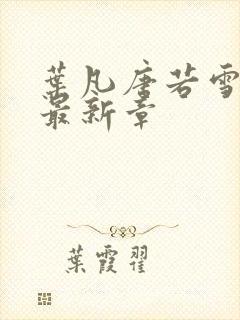 葉凡唐若雪
最新章
葉霞翟